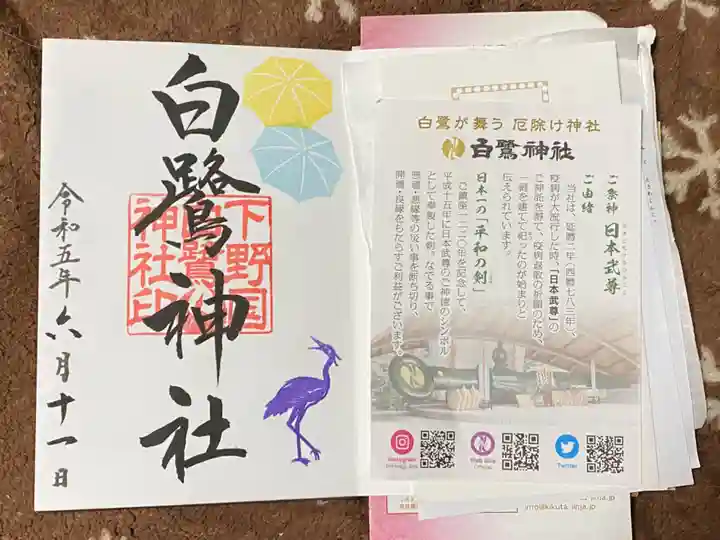 白鷺神社
令和五年六月十一日
下野国
白鷺
神社印
白鷺が舞う 厄除け神社
白鷺神社
ご祭神 日本武尊
ご由緒
当社は、延暦二年(西暦七八三年)、
疫病が大流行した時、「日本武尊」の
ご神託を静て、疫病退散の祈願のため、
一祠を建てて祀ったのが始まりと
伝えられています。
日本一の「平和の剣」
ご鎮座一二二〇年を記念して、
平成十五年に日本武尊のご神徳のシンボル
として奉製した剣。なでる事で
悪運・悪縁等の災い事を断ち切り、
開運・良縁をもたらすご利益がございます。
Instagram
Twitter